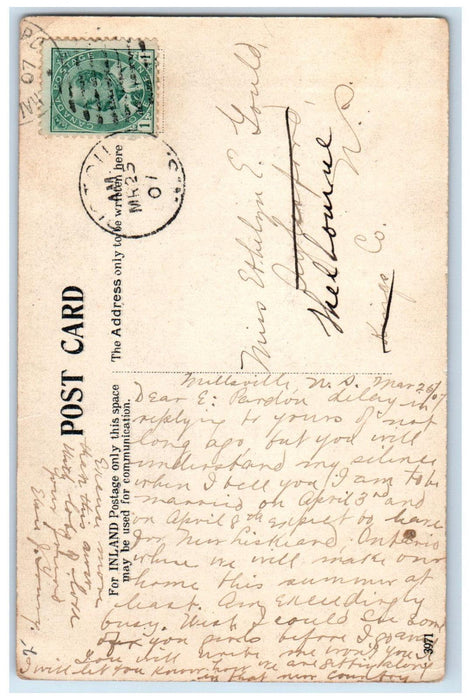 POST CARD
The Address only to be written here
For INLAND Postage only this space
may be used for communication.
CANADA POSTAGE
1
AM
MR 25
07
Miss Ethelyn E. Gould
Shelbourne
Kings Co.
N.S.
Millsville, N. S. Mar 26/07
Dear E: Pardon delay in
replying to yours of not
long ago, but you will
understand my silence
when I tell you I am to be
married on April 3rd and
on April 8th expect to leave
for New Liskeard, Ontario
where we will make our
home this summer at
least. Am exceedingly
busy. Wish I could see some
of you girls before I go away
You will write me won't you
I will let you know how we are getting along
in that new country
Write me
then this away
with lots of love
Yours
3971